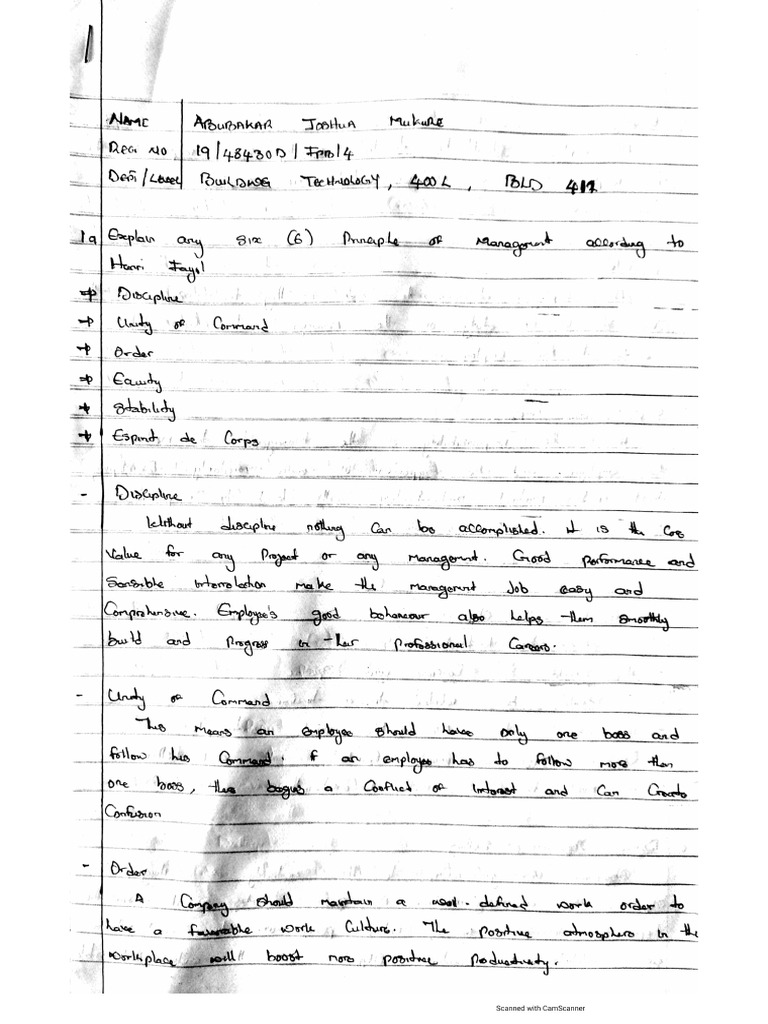 1
NAME ABUBAKAR JOSHUA MUKURE
REG NO 19/48480D/ /4
Dept/Level BUILDING TECHNOLOGY, 400L, BLD 417
1a Explain any six (6) Principle of Management according to
Henri Fayol
⇒ Discipline
⇒ Unity of Command
⇒ Order
⇒ Equity
⇒ Stability
⇒ Esprit de Corps
- Discipline
Without discipline nothing can be accomplished. It is the Core
Value for any Project or any management. Good performance and
Sensible Interrelation make the management Job easy and
Comprehensive. Employee's good behaviour also helps them smoothly
build and Progress in their Professional Careers.
- Unity of Command
This means an employee should have only one boss and
follow his Command. If an employee has to follow more than
one boss, this begins a Conflict of Interest and Can Create
Confusion
- Order
A Company should maintain a well-defined work order to
have a favourable work Culture. The positive atmosphere in the
workplace will boost more positive productivity.
Scanned with CamScanner